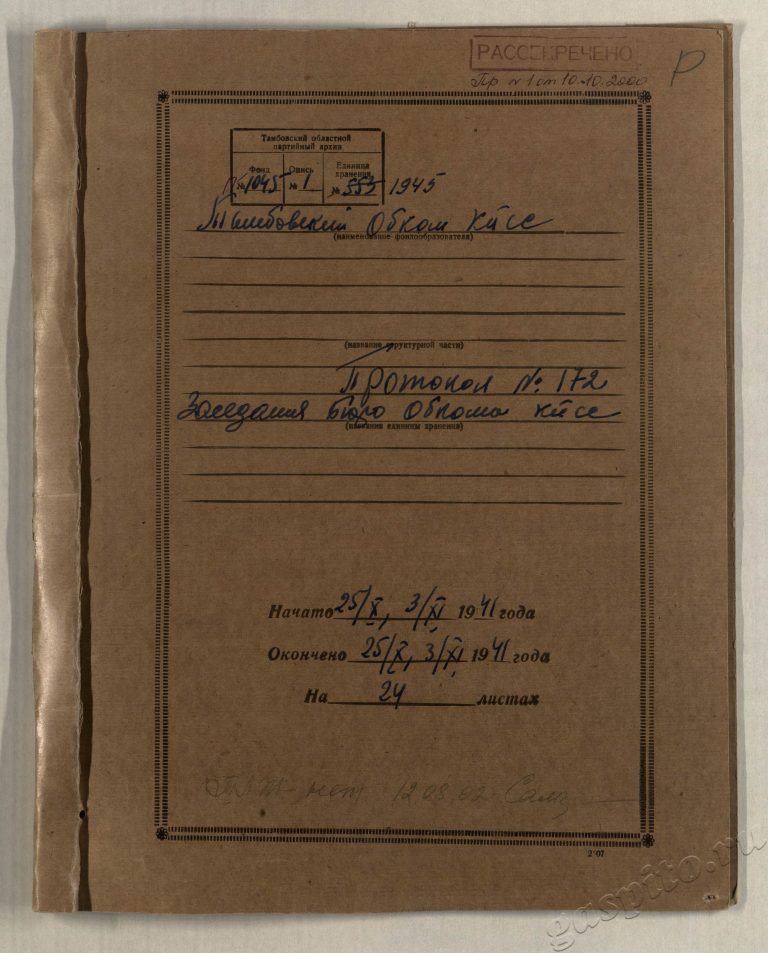 РАССЕКРЕЧЕНО
Пр №1 от 10.10.2000
Р
Тамбовский областной
партийный архив
Фонд
№ 1045
Опись
№ 1
Единица
хранения
№ 553
1945
Тамбовский Обком КПСС
(наименование фондообразователя)
(название структурной части)
Протокол № 172
Заседания бюро Обкома КПСС
(название единицы хранения)
Начато 25/X, 3/XI 1941 года
Окончено 25/X, 3/XI 1941 года
На 24 листах
нет 12.08.02
2*07
gaspito.ru